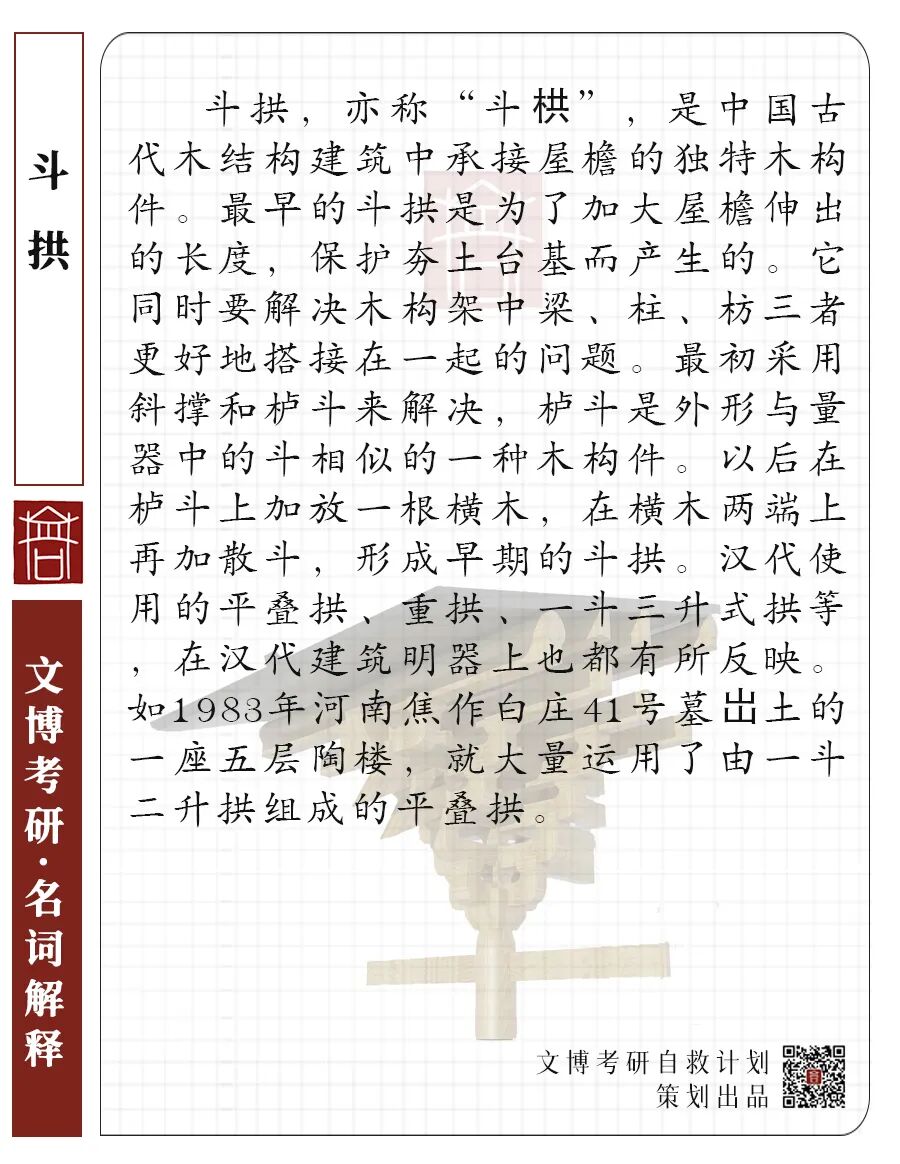 斗拱
文博考研·名词解释
斗拱，亦称“斗栱”，是中国古
代木结构建筑中承接屋檐的独特木构
件。最早的斗拱是为了加大屋檐伸出
的长度，保护夯土台基而产生的。它
同时要解决木构架中梁、柱、枋三者
更好地搭接在一起的问题。最初采用
斜撑和栌斗来解决，栌斗是外形与量
器中的斗相似的一种木构件。以后在
栌斗上加放一根横木，在横木两端上
再加散斗，形成早期的斗拱。汉代使
用的平叠拱、重拱、一斗三升式拱等
，在汉代建筑明器上也都有所反映。
如1983年河南焦作白庄41号墓出土的
一座五层陶楼，就大量运用了由一斗
二升拱组成的平叠拱。
文博考研自救计划
策划出品